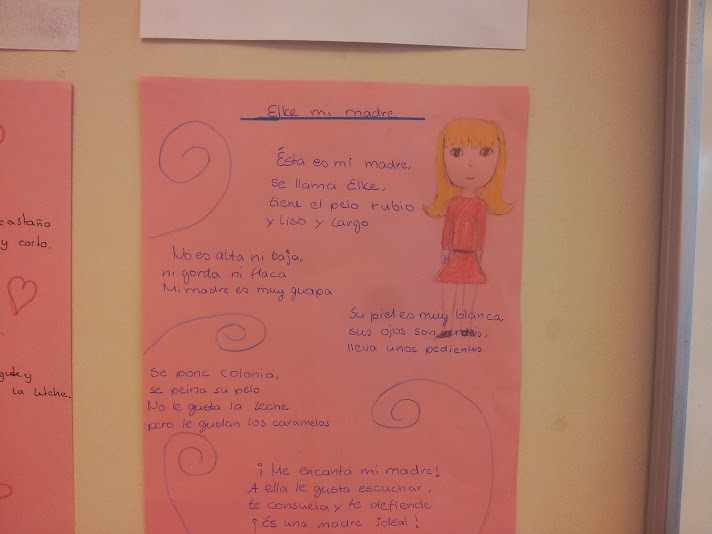 Elke mi madre
Ésta es mi madre,
se llama Elke,
tiene el pelo rubio
y liso y largo
No es alta ni baja,
ni gorda ni flaca
Mi madre es muy guapa
Su piel es muy blanca,
sus ojos son verdes,
lleva unos pedientes
Se pone colonia,
se peina su pelo
No le gusta la leche
pero le gustan los caramelos
¡Me encanta mi madre!
A ella le gusta escuchar,
te consuela y te defiende
¡Es una madre ideal!
castaño
y corto.
y
la leche.